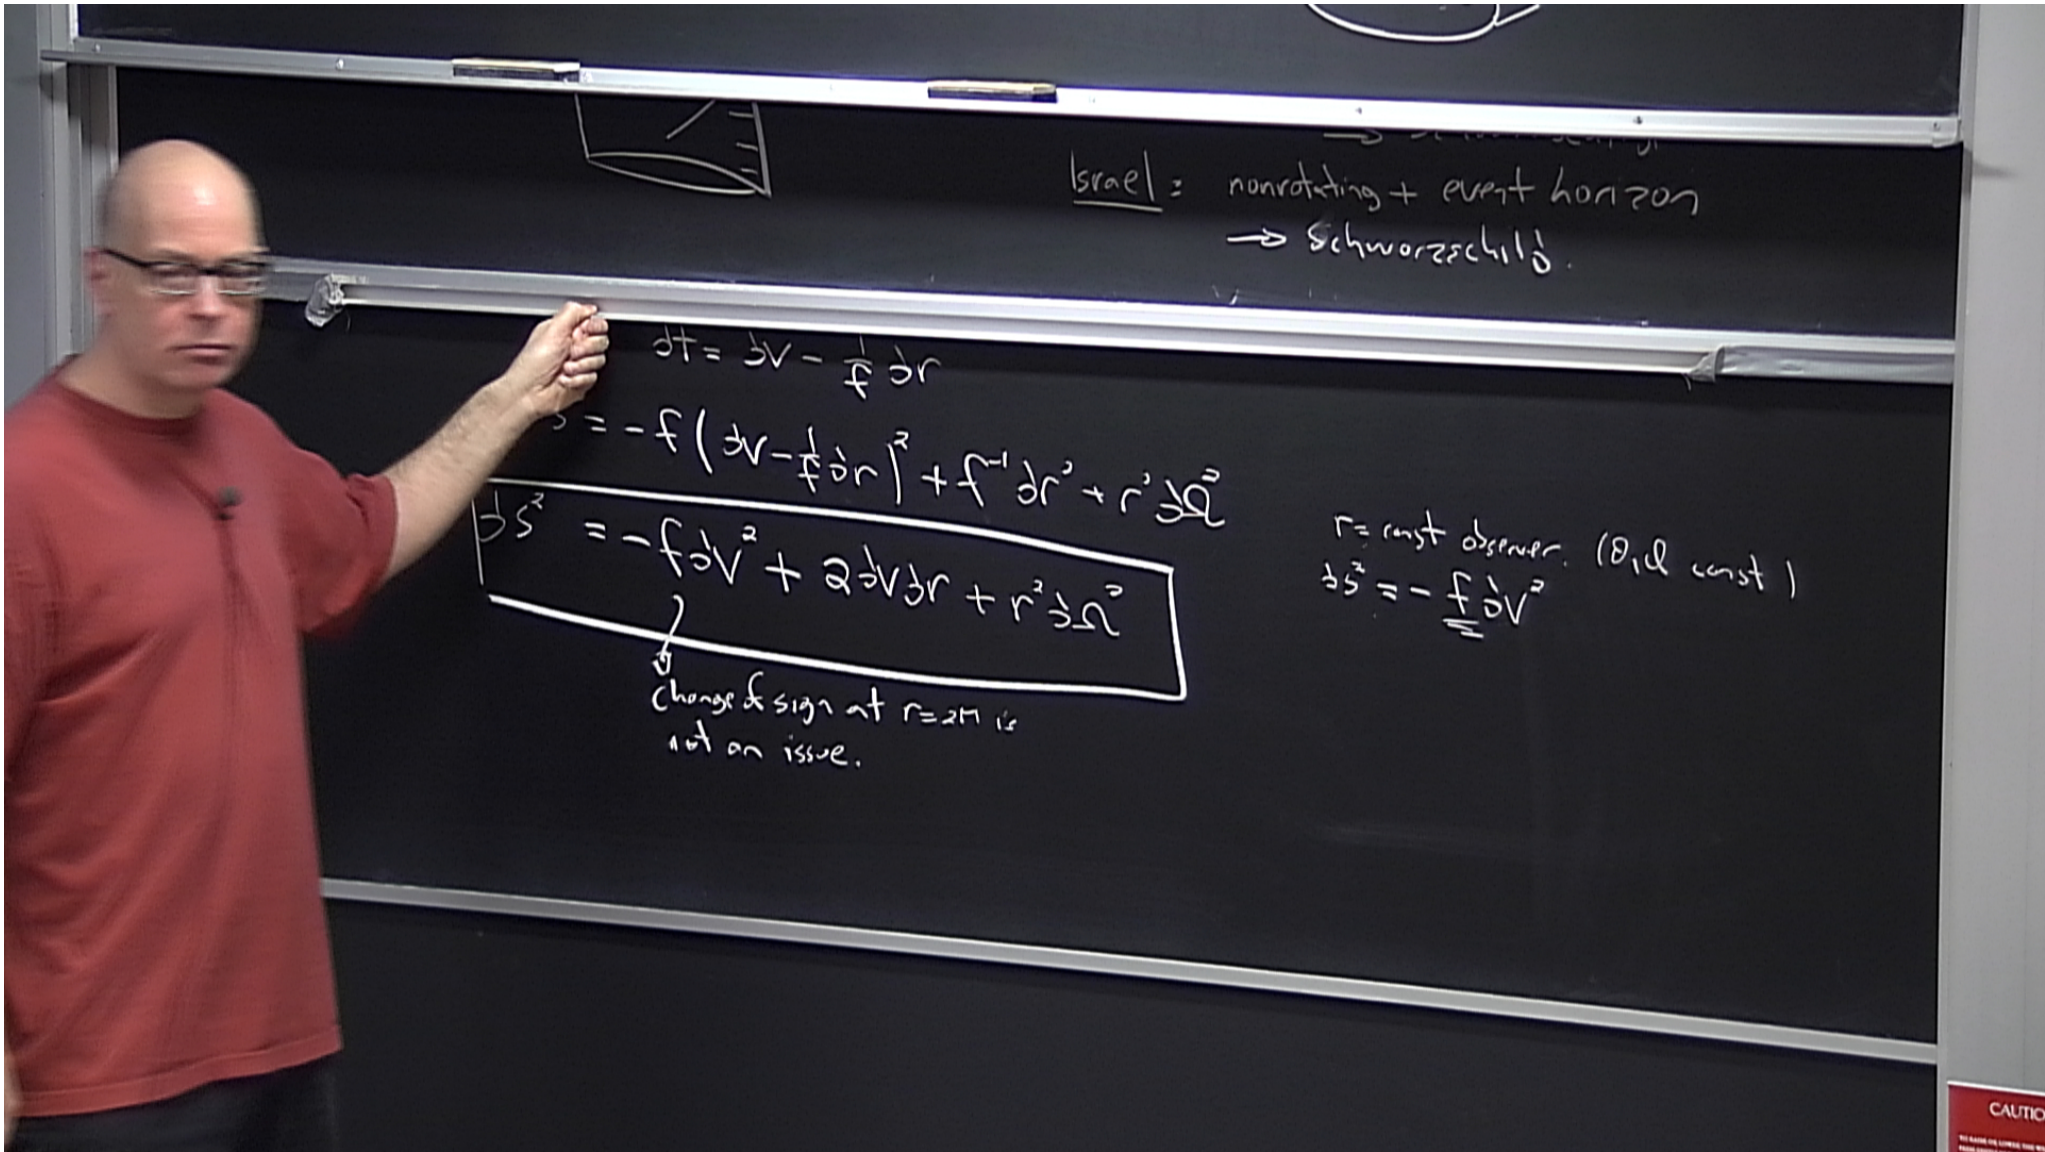 Israel: nonrotating + event horizon
→ Schwarzschild.
dt = dv - 1/f dr
= -f(dv - 1/f dr)² + f⁻¹ dr² + r² dΩ²
ds² = -f dv² + 2dv dr + r² dΩ²
change of sign at r=2M is
not an issue.
r= const observer. (θ, φ const)
ds² = - f dv²
CAUTIO